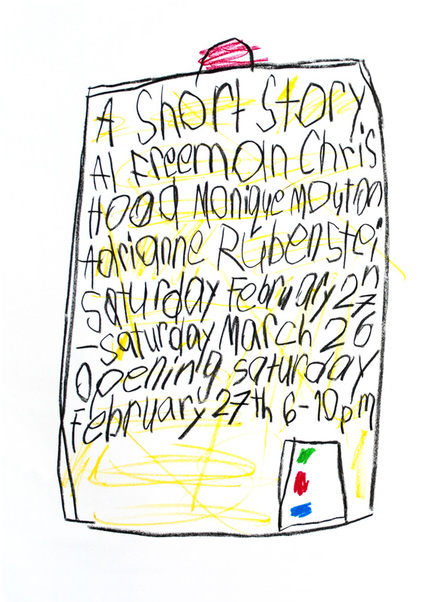 A Short Story
Al Freeman Chris
Hood Monique Mouton
Adrianne Rubenstei
n
Saturday February 27
-saturday March 26
Opening saturday
February 27th 6-10pm